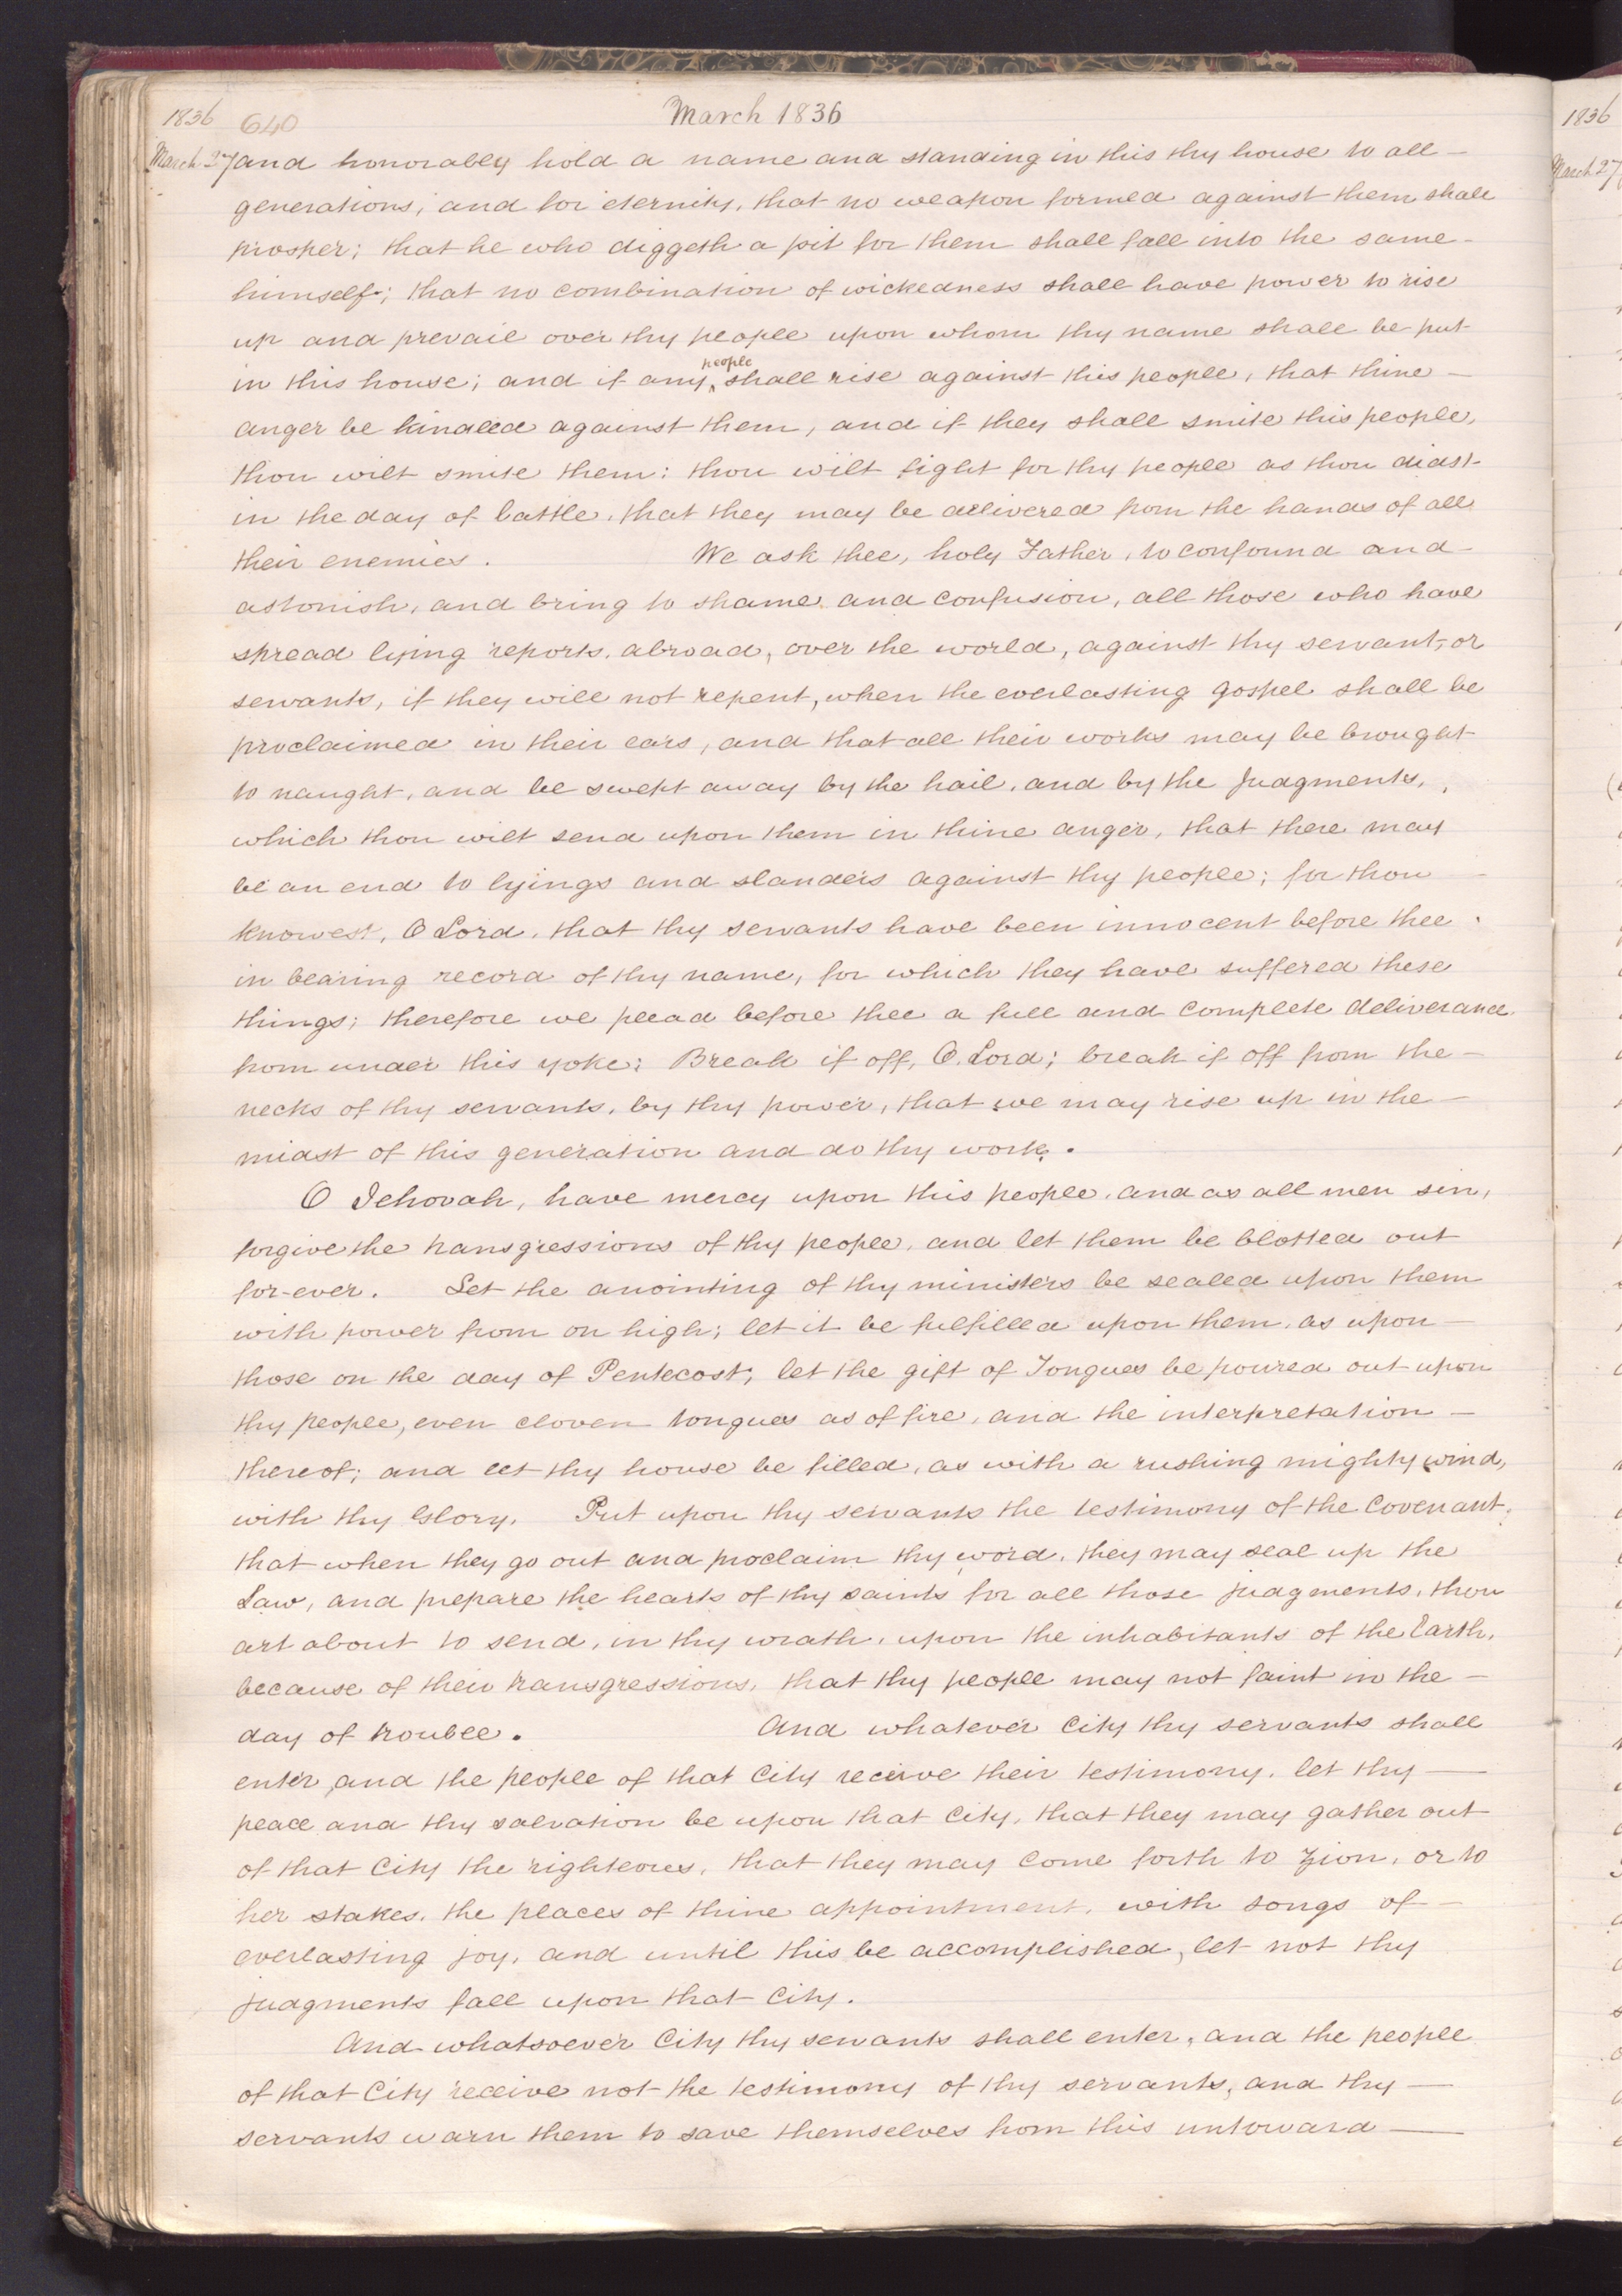 1836 640 March 1836
March 27 and honorably hold a name and standing in this thy house to all —
generations, and for eternity, that no weapon formed against them shall
prosper; that he who diggeth a pit for them shall fall into the same -
himself; that no combination of wickedness shall have power to rise
up and prevail over thy people upon whom thy name shall be put
people
in this house; and if any ^ shall rise against this people, that thine —
anger be kindled against them, and if they shall smite this people,
thou wilt smite them: thou wilt fight for thy people as thou didst
in the day of battle, that they may be delivered from the hands of all
their enemies. We ask thee, holy Father, to confound and -
astonish, and bring to shame and confusion, all those who have
spread lying reports, abroad, over the world, against thy servant, or
servants, if they will not repent, when the everlasting gospel shall be
proclaimed in their ears, and that all their works may be brought
to naught, and be swept away by the hail, and by the Judgments,
which thou wilt send upon them in thine anger, that there may
be an end to lyings and slanders against thy people; for thou
knowest, O Lord, that thy servants have been innocent before thee
in bearing record of thy name, for which they have suffered these
things; therefore we plead before thee a full and complete deliverance
from under this yoke: Break if off, O. Lord; break if off from the —
necks of thy servants, by thy power, that we may rise up in the —
midst of this generation and do thy work.
O Jehovah, have mercy upon this people, and as all men sin,
forgive the transgressions of thy people, and let them be blotted out
for-ever. Let the anointing of thy ministers be sealed upon them
with power from on high; let it be fulfilled upon them, as upon —
those on the day of Pentecost; let the gift of Tongues be poured out upon
thy people, even cloven tongues as of fire, and the interpretation —
thereof; and let thy house be filled, as with a rushing mighty wind,
with thy Glory. Put upon thy servants the testimony of the Covenant,
that when they go out and proclaim thy word, they may seal up the
Law, and prepare the hearts of thy saints for all those judgments, thou
art about to send, in thy wrath, upon the inhabitants of the Earth,
because of their transgressions, that thy people may not faint in the —
day of trouble. And whatever City thy servants shall
enter, and the people of that City receive their testimony, let thy —
peace and thy salvation be upon that City, that they may gather out
of that City the righteous, that they may come forth to Zion, or to
her stakes, the places of thine appointment, with songs of —
everlasting joy, and until this be accomplished, let not thy
judgments fall upon that City.
And whatsoever City thy servants shall enter, and the people
of that City receive not the testimony of thy servants, and thy —
servants warn them to save themselves from this untoward —
1836
March 27